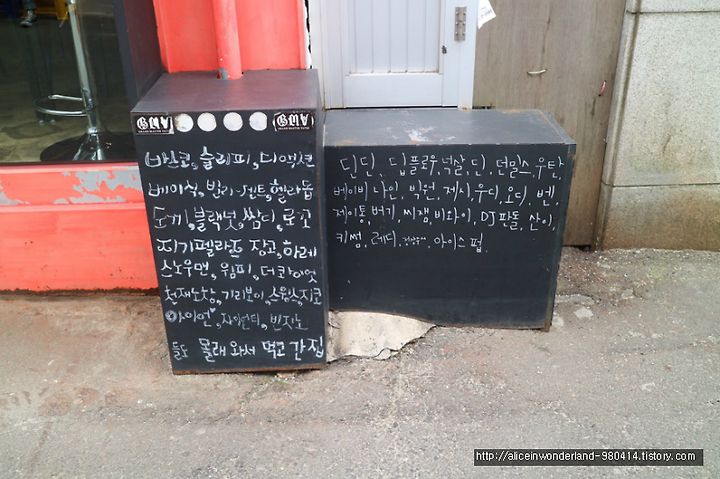 GWA GWA
넋산꼬, 슬리피, 디액션
베이식, 빌리-젠트, 헬라돕
도끼, 블랙넛, 쌈디, 로꼬
지기펠라즈, 장꼬, 하레
스노우맨, 웜피, 더콰이엇
천재노창, 기리보이, 스윙스, 지코
아이언, 자이언티, 빈지노
들도 몰래 와서 먹고 간 집
딘딘, 딥플로우, 넉살, 딘, 던밀스, 우탄,
베이비나인, 빅원, 제시, 우디, 오디, 벤,
제이통, 버기, 씨잼, 비와이, DJ판돌, 산이,
키썸, 레디, 아이스 펍.
http://aliceinwonderland-980414.tistory.com